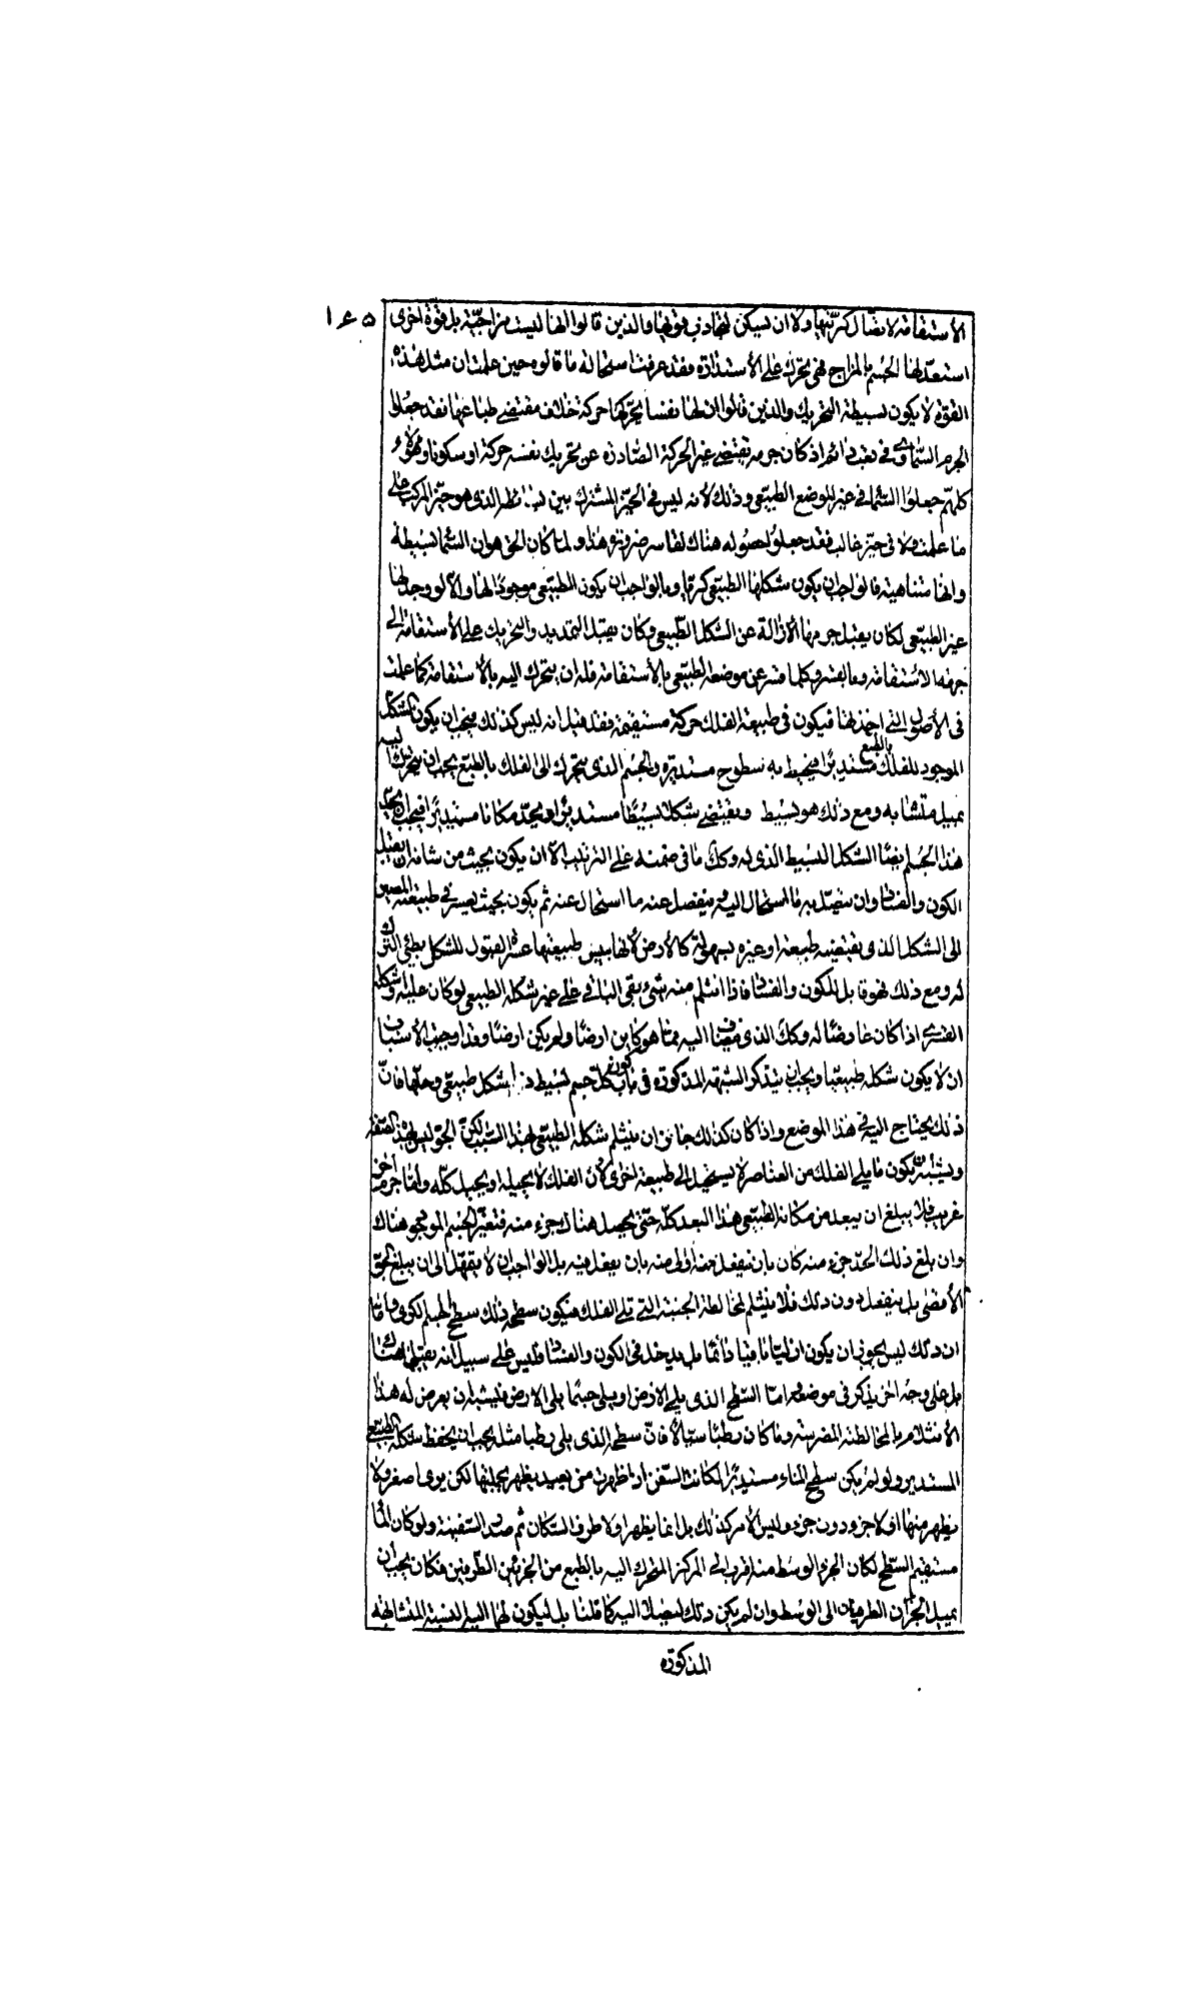 ١٦٥
الأستقامة لاتصال كريتها ولا ان تسكن لتجاذب قوتها والذين قالوا انها ليست مزاجية بل قوة اخرى
استعد لها الجسم بالمزاج فهى تحرك على الأستدارة فقد عرفت استحالة ما قالوه حين علمت ان مثل هذه
القوة لا يكون بسيطة التحريك والذين قالوا ان لها نفسا يحركها حركة خلاف مقتضى طباعها فقد جعلوا
الجرم السماوى فى تعب دائم اذ كان جرمه يقتضى غير الحركة الصادرة عن تحريك نفسه حركة او سكونا وهؤلاء
كلهم جعلوا السماء فى غير الموضع الطبيعى وذلك لانه ليس فى الحيز المشترك بين البسائط الذى هو حيز المركب على
ما علمت ولا فى حيز غالب فقد جعلوا حصوله هناك لقاسر ضرورة هذا ولما كان الحق هو ان السماء بسيطة
وانها متناهية فالواجب ان يكون شكلها الطبيعى كريا وبالواجب ان يكون الطبيعى موجودا لها والا لو وجد لها
غير الطبيعى لكان يقبل جرمها الأزالة عن الشكل الطبيعى وكان يقبل التمديد والتحريك على الأستقامة الى
جهة الاستقامة وما بقسر وكلما قسر عن موضعه الطبيعى بالأستقامة فله ان يتحرك اليه بالأستقامة كما علمت
فى الأصول التى اخذتها فيكون فى طبيعة الفلك حركة مستقيمة فقد قيل انه ليس كذلك فيجب ان يكون الشكل
الموجود للفلك بالطبع مستديرا فيحيط به سطوح مستديرة والجسم الذى يتحرك الى الفلك بالطبع يجب ان يتحرك اليه
بميل متشابه ومع ذلك هو بسيط ويقتضى شكلا بسيطا مستديرا ويجد مكانا مستديرا فيجب ان يجد
هذا الجسم ايضا الشكل البسيط الذى له وكك ما فى ضمنه على الترتيب الا ان يكون بحيث من شانه ان يقبل
الكون والفساد وان يتصل به ما استحال اليه وينفصل عنه ما استحال عنه ثم يكون بحيث يعسر فى طبيعته المصير
الى الشكل الذى يقتضيه طبيعته او غيره بسهولة كالأرض لأنها بيبس طبيعتها عسرة القبول للشكل بطئى الترك
له ومع ذلك فهو قابل للكون والفساد فاذا انثلم منه شىء بقى الباقى على غير شكله الطبيعى لو كان عليه او شكله
القسرى اذا كان عارضا له وكك الذى يضاف اليه مما هو كاين ارضا ولم يكن ارضا وقد اوجبت الأسباب
ان لا يكون شكله طبيعيا ويجب ان يتذكر الشبهة المذكورة فى باب كون كل جسم بسيط ذا شكل طبيعى وحلها فان
ذلك يحتاج اليه فى هذا الموضع واذا كان كذلك جاز ان ينثلم شكله الطبيعى لهذا السبب لكن الحق ليس بهذه الصفة
ويشبه ان يكون ما يلى الفلك من العناصر لا يستحيل الى طبيعة اخرى لأن الفلك لا يحيله او يحيل كله واما جرم اخر
غريب فلا يبلغ ان يبعد من مكانه الطبيعى هذا البعد كله حتى يحصل هناك جزء منه فتغير الجسم الموجود هناك
وان بلغ ذلك الحد جزء منه كان بان ينفعل منه اولى منه بان يفعل فيه بل الواجب ان لا يمهل الى ان يبلغ الحق
الأقصى بل ينفعل دون ذلك فلا ينثلم لمخالطة الجنبة التى تلى الفلك فيكون سطحه ذلك سطح الجسم الكرى واما
ان ذلك ليس يجوز ان يكون ازليا باقيا دائما بل يدخل فى الكون والفساد فليس على سبيل انه يقبلها هناك
بل على وجه اخر يذكر فى موضعه واما السطح الذى يلى الارض او يلى جسما يلى الارض فيشبه ان يعرض له هذا
الأنثلام بالمخالطة المضرسة وما كان رطبا سيالا فان سطحه الذى يلى رطبا مثله يجب ان يحفظ شكله الطبيعى
المستدير ولو لم يكن سطح الماء مستديرا لكانت السفن اذا ظهرت من بعيد يظهر بجملتها لكن يرى اصغر ولا
يظهر منها اولا جزء دون جزء وليس الأمر كذلك بل انما يظهر اولا طرف السكان ثم صدر السفينة ولو كان الماء
مستقيم السطح لكان الجزء الوسط منه اقرب الى المركز المتحرك اليه بالطبع من الجزئين الطرفين فكان يجب ان
يميل الجزءان الطرفيان الى الوسط وان لم يكن ذلك ليصل اليه كما قلنا بل ليكون لهما اليه النسبة المتشابهة
المذكورة